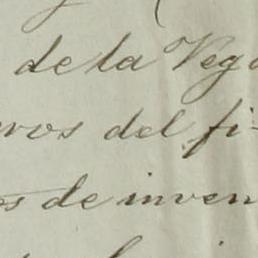 de la Vega
eros del fi-
os de inven